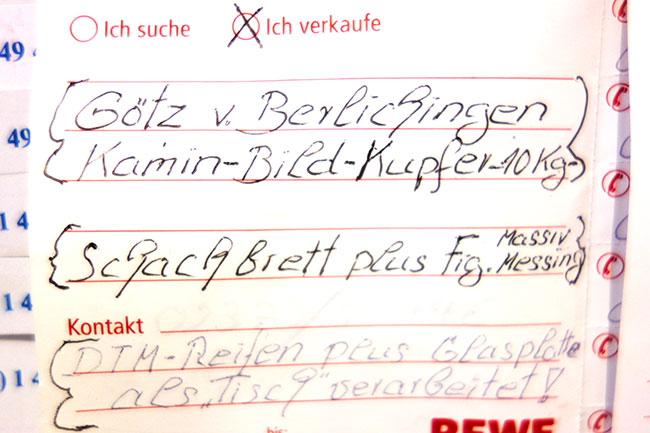 Ich suche Ich verkaufe
Götz v. Berlichingen
Kamin-Bild-Kupfer-10Kg-
Schach Brett plus Fig. Massiv Messing
Kontakt
DTM-Reifen plus Glasplatte
als „Tisch" verarbeitet!
bis:
REWE
49 4
49
1 4
1 4
0 1 4